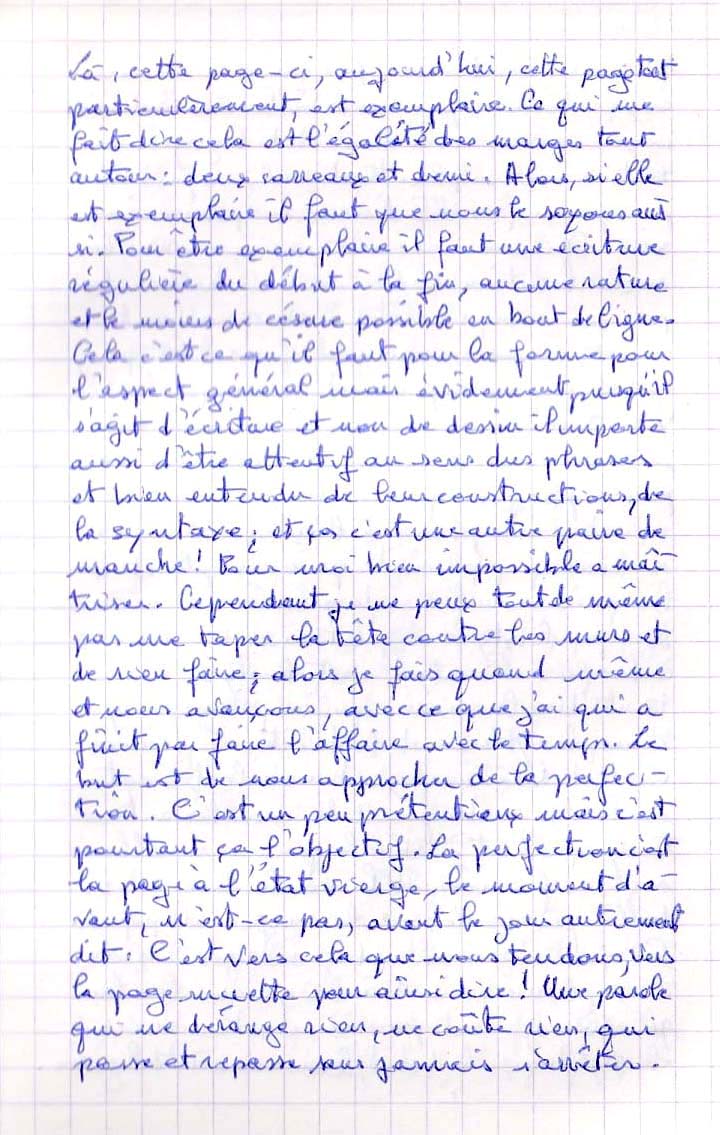 Là, cette page-ci, aujourd'hui, cette page tout
particulièrement, est exemplaire. Ce qui me
fait dire cela est l'égalité des marges tout
autour : deux carreaux et demi. Alors, si elle
est exemplaire il faut que nous le soyons aus
si. Pour être exemplaire il faut une écriture
régulière du début à la fin, aucune rature
et le moins de césure possible en bout de ligne.
Cela c'est ce qu'il faut pour la forme pour
l'aspect général mais évidemment puisqu'il
s'agit d'écriture et non de dessin il importe
aussi d'être attentif au sens des phrases
et bien entendu de leur constructions, de
la syntaxe ; et ça c'est une autre paire de
manche ! Pour moi bien impossible a maî-
triser. Cependant je ne peux tout de même
pas me taper la tête contre les murs et
de rien faire ; alors je fais quand même
et nous avançons, avec ce que j'ai qui a
finit par faire l'affaire avec le temps. Le
but est de nous approcher de la perfec-
tion. C'est un peu prétentieux mais c'est
pourtant ça l'objectif. La perfection c'est
la page à l'état vierge, le moment d'a-
vant, n'est-ce pas, avant le jour autrement
dit. C'est vers cela que nous tendons, vers
la page muette pour ainsi dire ! Une parole
qui ne dérange rien, ne coûte rien, qui
passe et repasse sans jamais s'arrêter.